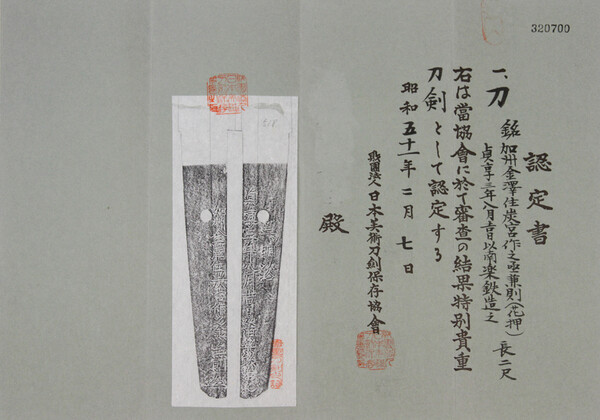 320700
認定書
一、刀 銘 加州金澤住炭宮作之 兼則(花押) 長二尺
貞享三年八月吉日以南蛮鉄造之
右は當協會に於て審査の結果特別貴重
刀剣として認定する
昭和五十一年二月七日
財團法人日本美術刀剣保存協會
殿